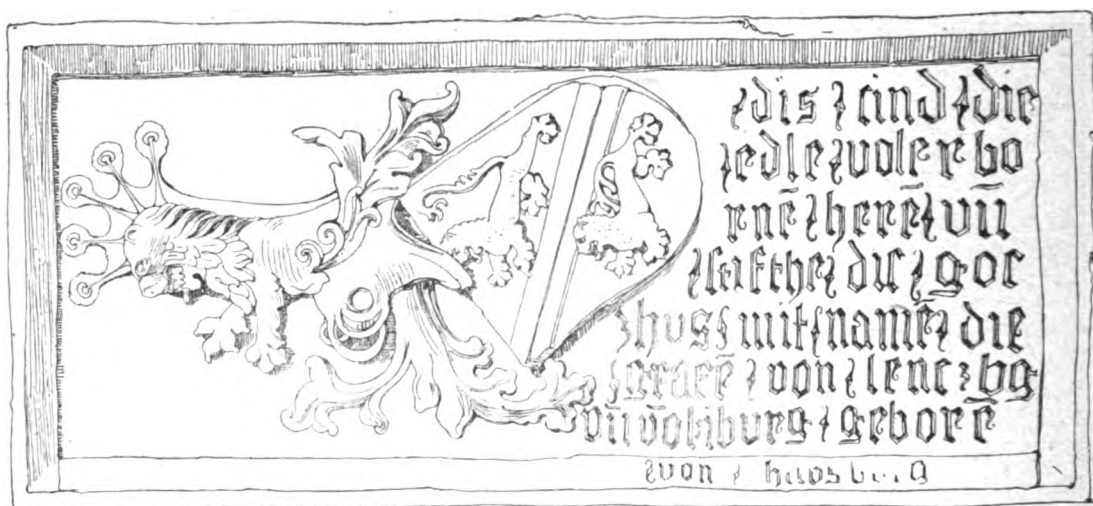 dis sind die
edle volerbo
rnē herē vn̄
stifthe dis goc
hus mit namē die
graefē von lenczbg
vn̄ von burg geborē
von habsburg